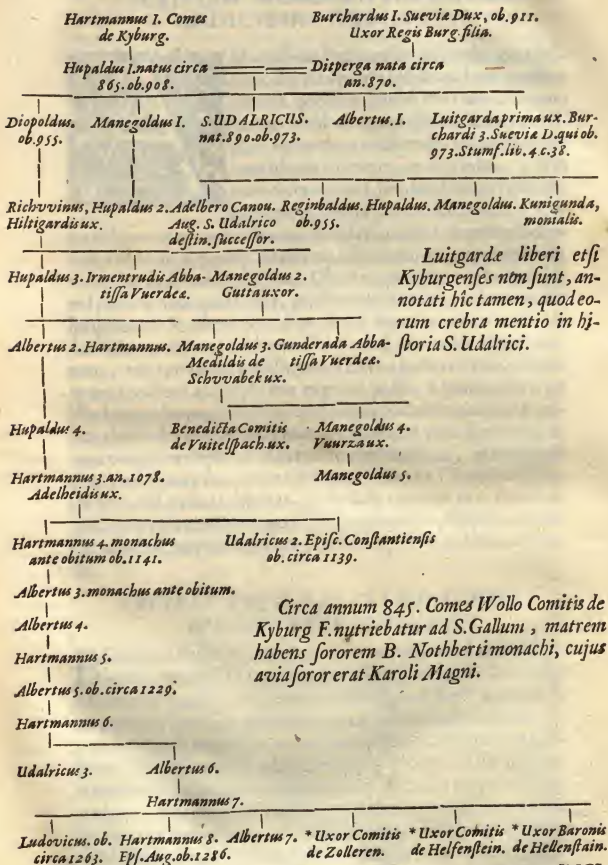 Hartmannus I. Comes
de Kyburg.
Burchardus I. Sueviæ Dux, ob. 911.
Uxor Regis Burg. filia.
Hupaldus I. natus circa
865. ob. 908.
Ditperga nata circa
an. 870.
Diopoldus.
ob. 955.
Manegoldus I.
S. UDALRICUS.
nat. 890. ob. 973.
Albertus. I.
Luitgarda prima ux. Bur-
chardi 3. Sueviæ D. qui ob.
973. Stumf. lib. 4. c. 38.
Richvvinus,
Hiltigardis ux.
Hupaldus 2.
Adelbero Canou.
Aug. S. Udalrico
destin. successor.
Reginbaldus.
ob. 955.
Hupaldus.
Manegoldus.
Kunigunda,
monialis.
Hupaldus 3.
Irmentrudis Abba-
tissa Vuerdeæ.
Manegoldus 2.
Gutta uxor.
Luitgardæ liberi etsi
Kyburgenses non sunt, an-
notati hîc tamen, quod eo-
rum crebra mentio in hi-
storia S. Udalrici.
Albertus 2.
Hartmannus.
Manegoldus 3.
Medildis de
Schvvabek ux.
Gunderada Abba-
tissa Vuerdeæ.
Hupaldus 4.
Benedicta Comitis
de Vuitelspach. ux.
Manegoldus 4.
Vuurza ux.
Hartmannus 3. an. 1078.
Adelheidis ux.
Manegoldus 5.
Hartmannus 4. monachus
ante obitum ob. 1141.
Udalricus 2. Episc. Constantiensis
ob. circa 1139.
Albertus 3. monachus ante obitum.
Albertus 4.
Hartmannus 5.
Albertus 5. ob. circa 1229.
Hartmannus 6.
Circa annum 845. Comes Wollo Comitis de
Kyburg F. nutriebatur ad S. Gallum, matrem
habens sororem B. Nothberti monachi, cujus
avia soror erat Karoli Magni.
Udalricus 3.
Albertus 6.
Hartmannus 7.
Ludovicus. ob.
circa 1263.
Hartmannus 8.
Eps. Aug. ob. 1286.
Albertus 7.
* Uxor Comitis
de Zolleren.
* Uxor Comitis
de Helfenstein.
* Uxor Baronis
de Hellenstain.